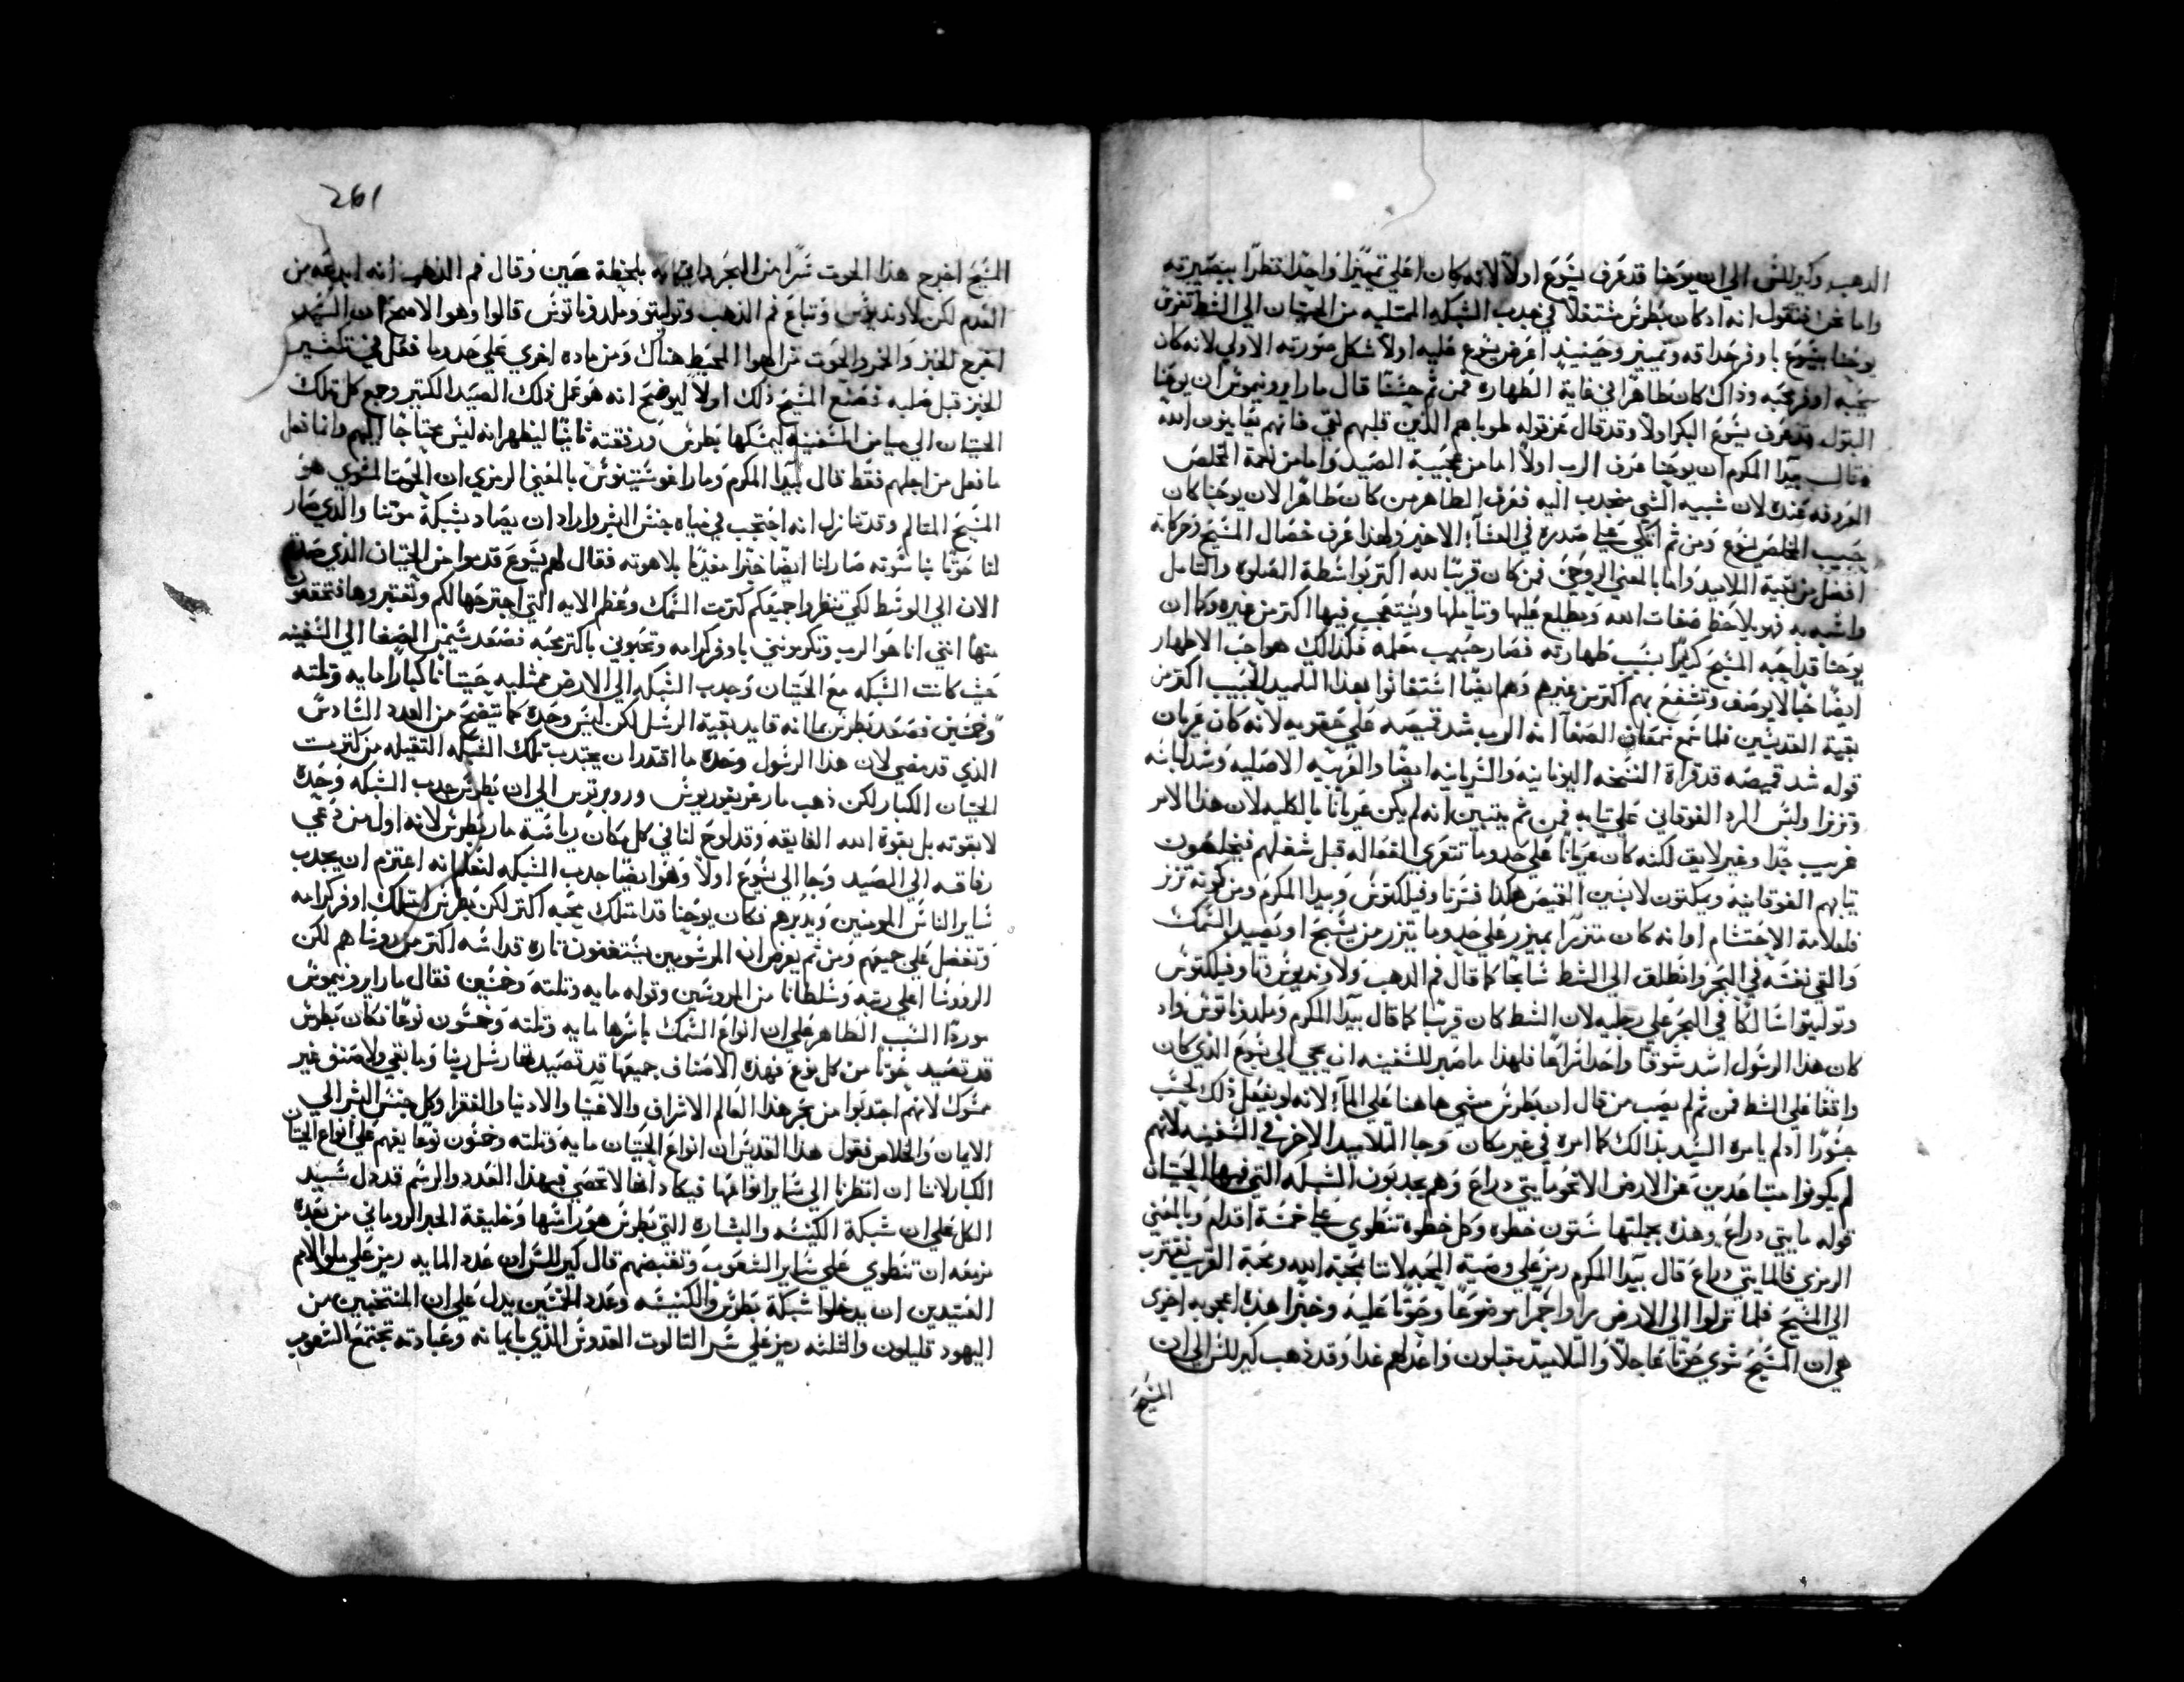 الدهب وكيرللس الي ان يوحنا قد عرف يسوع اولاً لانه كان اعلي تمييزاً واحد نظراً ببصيرته
واما نحن فنقول انه اد كان بطرس مشتغلاً في جدب الشبكه الممتليه من الحيتان الي الشط تفرس
يوحنا بيسوع باوفر حداقه وتمييز وحينيدٍ اعرض يسوع عليه اولاً شكل صورته الاولي لانه كان
يحبه اوفر محبه وذاك كان طاهراً في غاية الطهاره فمن ثم حسناً قال مار ايرونيموس ان يوحنا
البتول قد عرف يسوع البكر اولاً وقد قال عز قوله طوباهم الذين قلبهم نقي فانهم يعاينون الله
وقال بيدا المكرم ان يوحنا عرف الرب اولاً اما من عجيبة الصيد واما من نغمة المخلص
المعروفه عنده لان شبيه الشي منجدب اليه فعرف الطاهر من كان طاهراً لان يوحنا كان
حبيب المخلص يسوع ومن ثم اتكي علي صدره في العشا الاخير ولهذا عرف خصال المسيح وحركاته
افضل من بقية التلاميد واما بالمعني الروحي فمن كان قريباً لله اكتر بواسطة الصلوه والتامل
واشبه به فهو يلاحظ صفات الله ويطلع عليها ويتاملها ويتعجب فيها اكتر من غيره وكما ان
يوحنا قد احبه المسيح كثيراً بسبب طهارته فصار حبيب معلمه فكذالك هو احب الاطهار
ايضاً حباً لا يوصف وتشفع بهم اكتر من غيرهم وهم ايضاً استغاثوا بهدا التلميد الحبيب اكتر من
بقية القديسين فلما سمع سمعان الصفا انه الرب شد قميصه علي حقويه لانه كان عريان
قوله شد قميصه قد قراة النسخه اليونانيه والسريانيه ايضاً والعربيه الاصليه وشد لباسه
وتزنر ولبس الردا الفوقاني علي تيابه فمن ثم يتبين انه لم يكن عرياناً بالكليه لان هذا الامر
غريب جداً وغير لايق لكنه كان عرياناً علي حدوما تتعري الفعاله قبل شغلهم فيخلعون
تيابهم الفوقانيه ويمكتون لابسين القميص هكذا فسرنا وفيلكتوس وبيدا المكرم ومن كونه تزر
فلعلامة الاحتشام او انه كان متزراً بميزر علي حدوما يتزر من يسبح او يصيد السمك
والقي نفسه في البحر وانطلق الي الشط سابحاً كما قال فم الدهب ولاونديوس وفيلكتوس
وتوليتو اسالكاً في البحر علي رجليه لان الشط كان قريباً كما قال بيدا المكرم وملدوناتوس واد
كان هذا الرسول اشد شوقاً واحد غراماً فلهذا ما صبر للسفينه ان يجي الي يسوع الذي كان
واقفاً علي الشط فمن ثم لم يصب من قال ان بطرس مشي هاهنا علي الما لانه لو يفعل ذلك لحسب
جسوراً اد لم يامره السيد بذالك كما امره في غير مكان وجا التلاميد الاخر في السفينه لانهم
لم يكونوا متباعدين عن الارض الا نحو مايتي دراع وهم يجدبون الشبكه التي فيها الحيتان
قوله مايتي دراع وهذه بجملتها ستون خطوه وكل خطوه تنطوي علي خمسة اقدام وبالمعني
الرمزي فالمايتي دراع قال بيدا المكرم رمز علي وصية المحبه لاننا بمحبة الله ومحبة القريب نقترب
الي المسيح فلما نزلوا الي الارض راوا جمراً موضوعاً وحوتاً عليه وخبزاً هذه اعجوبه اخري
هي ان المسيح شوي حوتاً عاجلاً والتلاميد مقبلون واعد لهم غدا وقد ذهب كيرللس الي ان
المسيح
261
المسيح اخرج هذا الحوت سراً من البحر واتي به بلحظة عين وقال فم الدهب انه ابدعه من
العدم لكن لاونديوس وتباع فم الدهب وتوليتو وملدوناتوس قالوا وهو الاصح ان السيد
اخرج الخبز والخمر والحوت من الهوا المحيط هناك ومن ماده اخري علي حدوما فعل في تكتير
الخبز قبل صلبه فصنع المسيح ذلك اولاً ليوضح انه هو عمل ذلك الصيد الكتير وجمع كل تلك
الحيتان الي ميامن السفينه ليمسكها بطرس ورفقته ثانياً ليظهر انه ليس محتاجاً اليهم وانما فعل
ما فعل من اجلهم فقط قال بيدا المكرم ومار اغوستينوس بالمعني الرمزي ان الحوت المشوي هو
المسيح المتالم وقد تنازل انه احتجب في مياه جنس البشر واراد ان يصاد بشبكة موتنا والذي صار
لنا حوتاً بناسوته صار لنا ايضاً خبزاً مغدياً بلاهوته فقال لهم يسوع قدموا من الحيتان الذي صدتم
الان الي الوسط لكي تنظروا جميعكم كترت السمك وعظم الايه التي اجترحها لكم وتعتبروها فتتحققون
منها انني انا هو الرب وتكرمونني باوفر كرامه وتحبوني باكتر محبه فصعد سيمن الصفا الي السفينه
حيث كانت الشبكه مع الحيتان وجدب الشبكه الي الارض ممتليه حيتاناً كباراً مايه وتلته
وخمسين فصعد بطرس بما انه قايد بقية الرسل لكن ليس وحده كما يتضح من العدد السادس
الذي قد مضي لان هذا الرسول وحده ما اقتدر ان يجتدب تلك الشبكه التقيله من كترت
الحيتان الكبار لكن ذهب مار غريغوريوس وروبرتوس الي ان بطرس جدب الشبكه وحده
لا بقوته بل بقوة الله الفايقه وقد لوح لنا في كل مكان رياسة مار بطرس لانه اول من دعي
رفاقه الي الصيد وجا الي يسوع اولاً وهو ايضاً جدب الشبكه لنعلم انه اعتزم ان يجدب
ساير الناس المومنين ويدبرهم فكان يوحنا قد امتلك محبه اكتر لكن بطرس امتلك اوفر كرامه
وتفضل علي جميعهم ومن ثم يعرض ان المرسومين يستغنون تارة قداسه اكتر من روسا هم لكن
الرووسا اعلي رتبه وسلطاناً من المروسين وقوله مايه وتلته وخمسين فقال مار ايرونيموس
مورداً السبب الظاهر علي ان انواع السمك باسرها مايه وتلته وخمسون نوعاً فكان بطرس
قد تصيد حوتاً من كل نوع فهذه الاصناف جميعها قد تصيدتها رسل ربنا وما بقي ولا صنف غير
ممسوك لانهم اجتدبوا من بحر هذا العالم الاشراف والاغنيا والادنيا والفقرا وكل جنس البشر الي
الايمان والخلاص فقول هذا القديس ان انواع الحيتان مايه وتلته وخمسون نوعاً يفهم علي انواع الحيتان
الكبار لاننا ان انتظرنا الي ساير انواعها فيكاد انها لا تحصي فبهذا العدد والرسم قد دل سيد
الكل علي ان شبكة الكنيسه والبشاره التي بطرس هو راسها وخليفة الحبر الروماني من بعده
مزمعه ان تنطوي علي ساير الشعوب وتقتبضهم قال كيرللس ان عدد المايه رمز علي ملو الامم
العتيدين ان يدخلوا شبكة بطرس والكنيسه وعدد الخمسين يدل علي ان المنتخبين من
اليهود قليلون والتلته رمز علي سر التالوت القدوس الذي بايمانه وعبادته تجتمع الشعوب